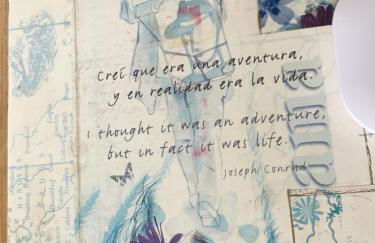 Creí que era una aventura,
y en realidad era la vida.
I thought it was an adventure,
but in fact it was life.
Joseph Conrad
ama